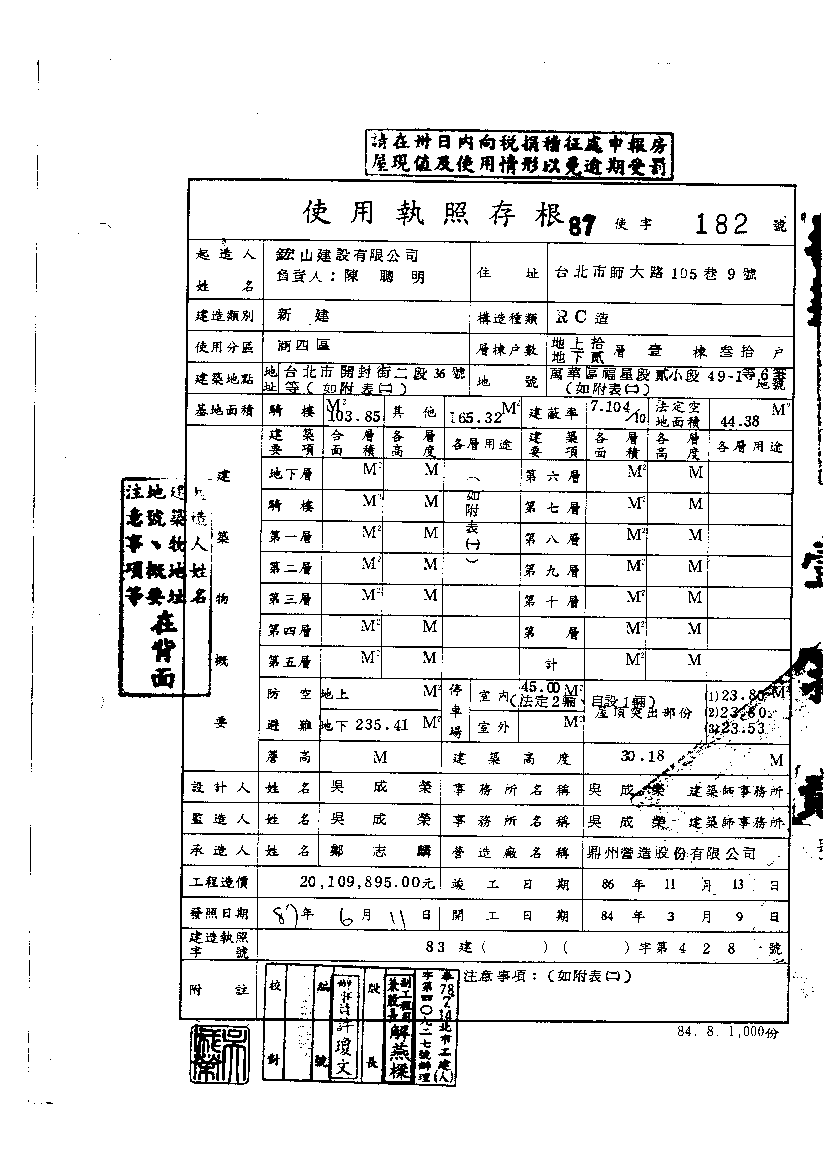 請在卅日內向稅捐稽征處申報房
屋現值及使用情形以免逾期受罰
使用執照存根 87 使字 182 號
起造人姓名 鋐山建設有限公司
負責人：陳聰明 住址 台北市師大路105巷9號
建造類別 新建 構造種類 RC造
使用分區 商四區 層棟戶數 地上拾地下貳層壹棟叁拾戶
建築地點 地址 台北市開封街二段36號等(如附表㈡) 地號 萬華區福星段貳小段49-1等6筆地號(如附表㈡)
基地面積 騎樓 103.85 M² 其他 165.32 M² 建蔽率 7.104/10 法定空地面積 44.38 M²
建築物概要
建築要項 合層面積 各層高度 各層用途 建築要項 各層面積 各層高度 各層用途
地下層 M² M (如附表㈠) 第六層 M² M
騎樓 M² M 第七層 M² M
第一層 M² M 第八層 M² M
第二層 M² M 第九層 M² M
第三層 M² M 第十層 M² M
第四層 M² M 第 層 M² M
第五層 M² M 計 M² M
防空避難 地上 M² 停車場 室內 45.00 M² (法定2輛、自設1輛) 屋頂突出部份 (1)23.80 M²
地下 235.41 M² 室外 M² (2)23.80
(3)23.53
簷高 M 建築高度 30.18 M
設計人 姓名 吳成榮 事務所名稱 吳成榮 建築師事務所
監造人 姓名 吳成榮 事務所名稱 吳成榮 建築師事務所
承造人 姓名 鄭志麟 營造廠名稱 鼎州營造股份有限公司
工程造價 20,109,895.00元 竣工日期 86年11月13日
發照日期 87年6月11日 開工日期 84年3月9日
建造執照字號 83建( )( )字第428號
附註 校對 編號 股長 注意事項：(如附表㈡)
許瓊文
解燕樑
84. 8. 1,000份
建造人姓名
建築物地址
地號、概要
注意事項等
在背面